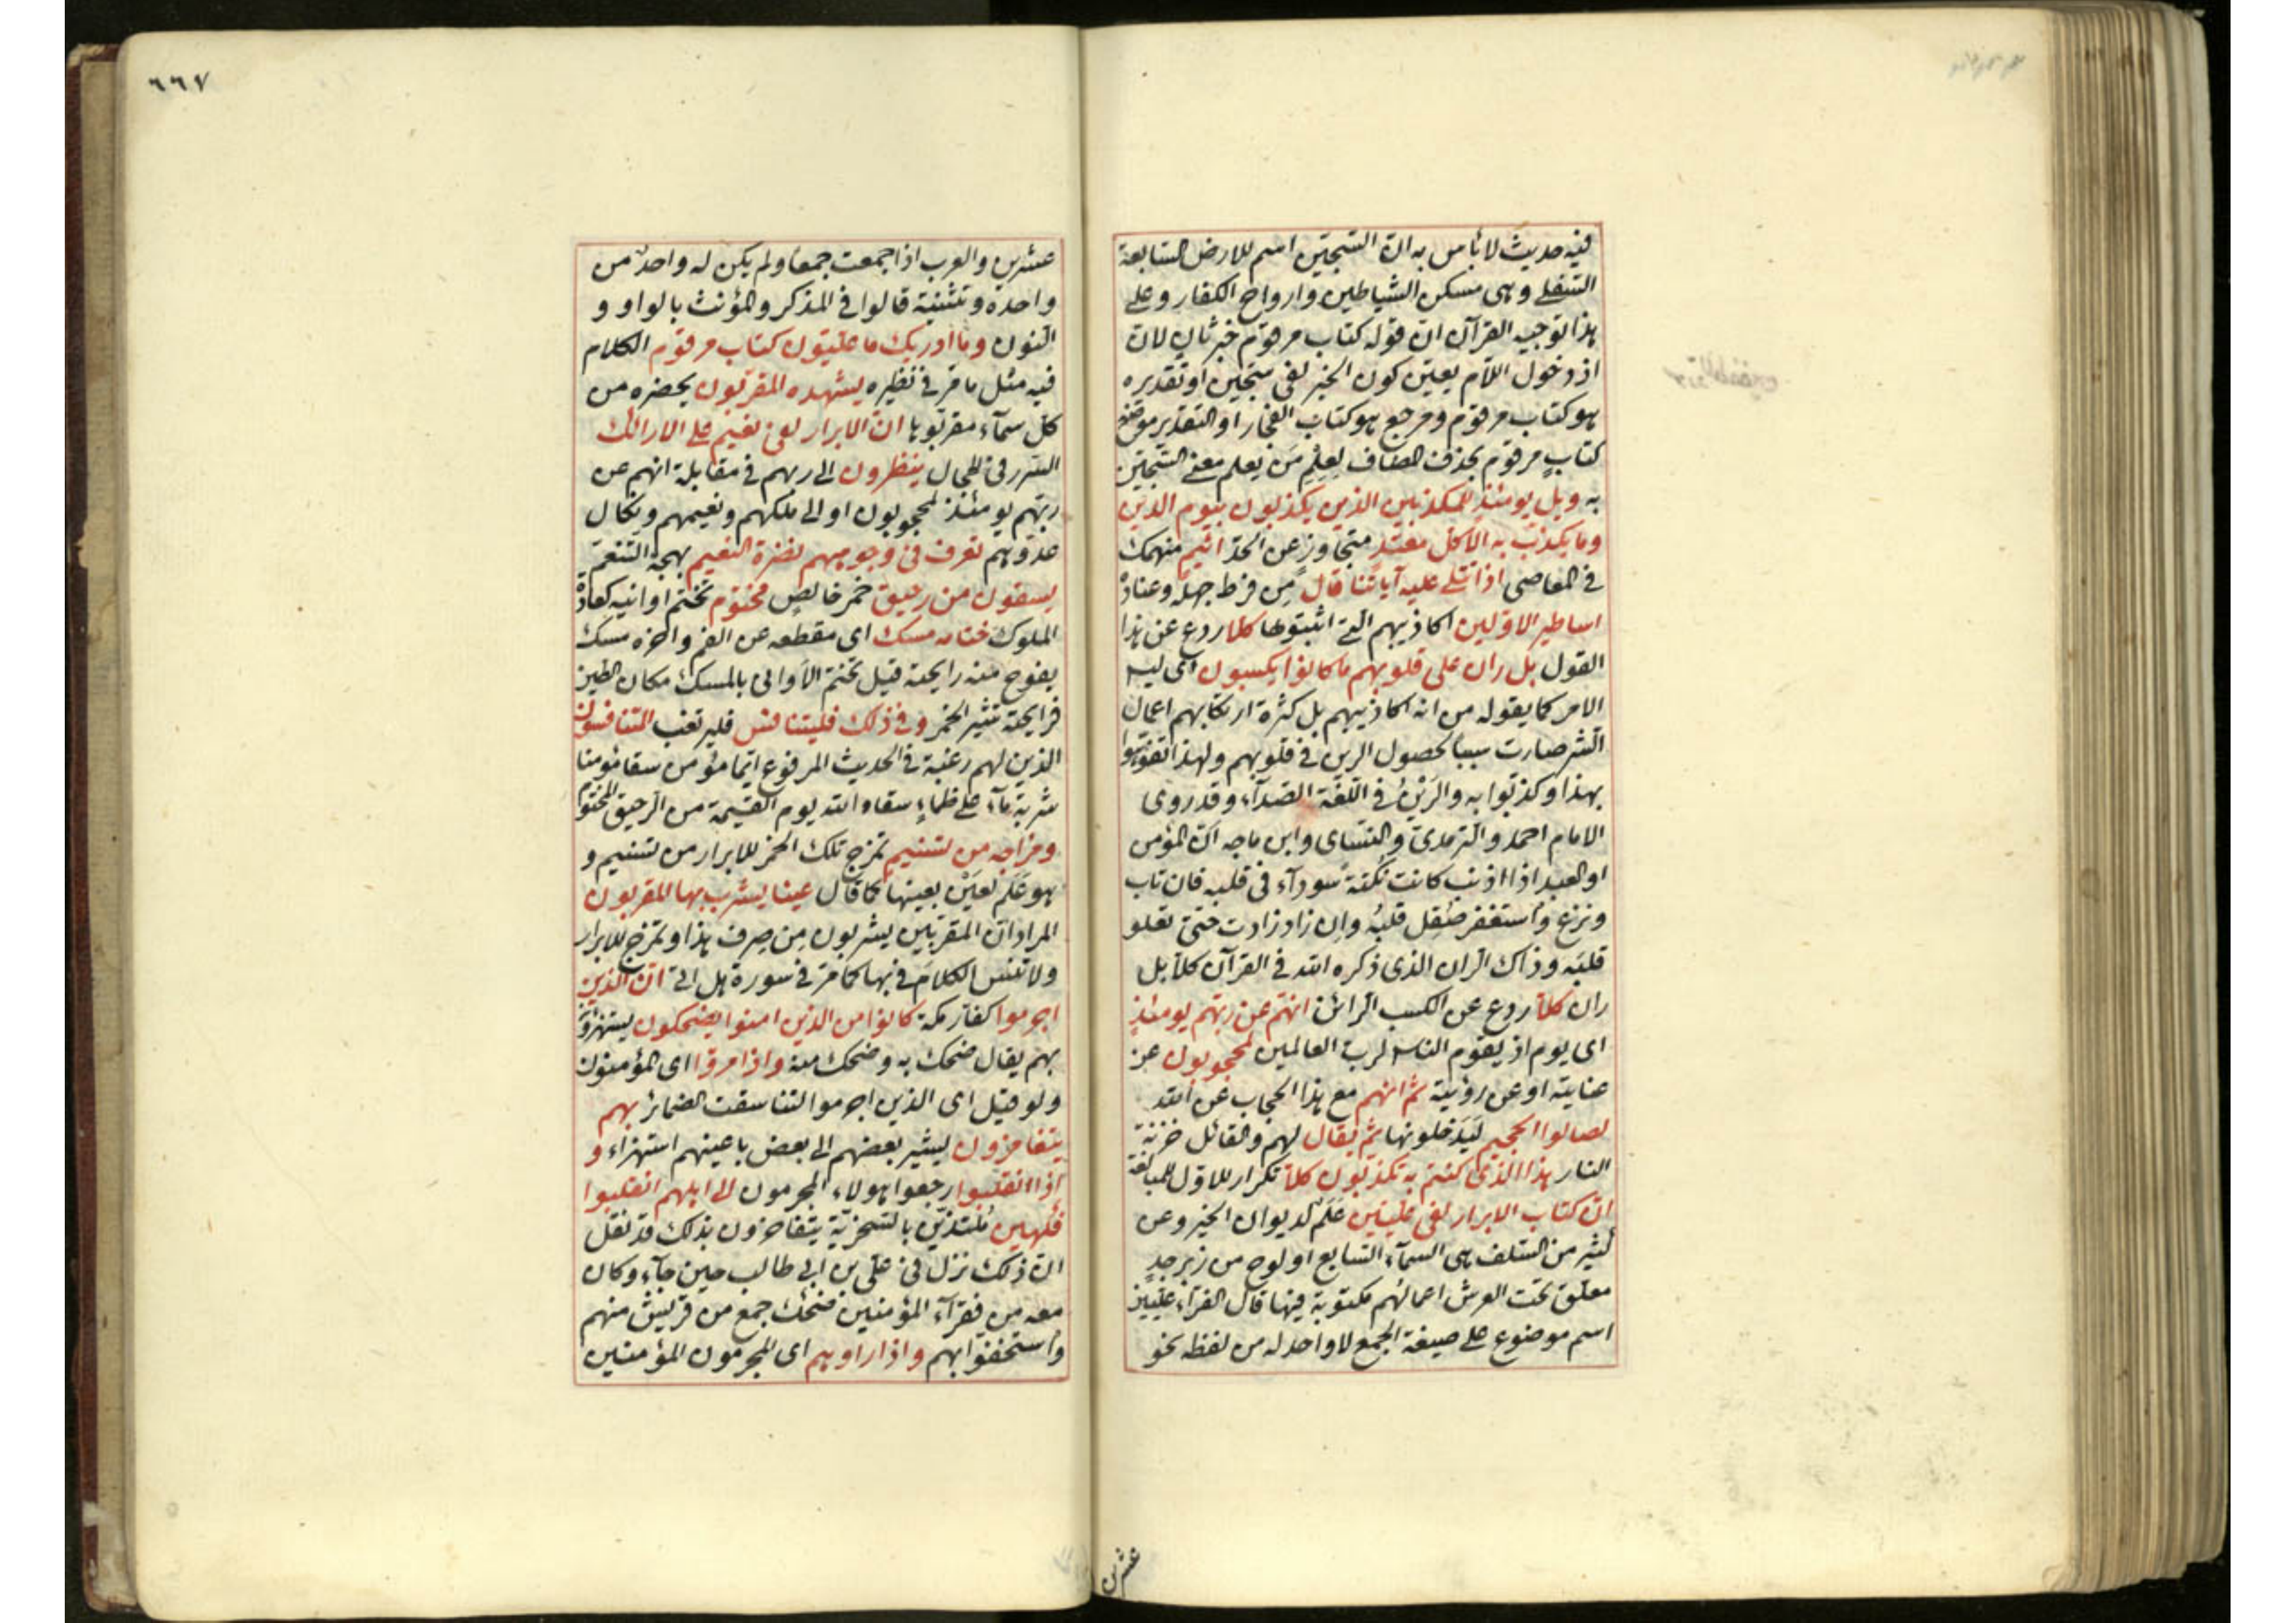 فيه حديث لا بأس به ان السجين اسم للارض السابعة
السفلى وهى مسكن الشياطين وارواح الكفار وعلى
هذا توجيه القرآن ان قوله كتاب مرقوم خبر ثان لان
اذ دخول اللام يعين كون الخبر لفى سجين او تقديره
هو كتاب مرقوم ومرجع هو كتاب الفجار او التقدير موضع
كتاب مرقوم بحذف المضاف ليعلم من يعلم معنى السجين
به ويل يومئذ للمكذبين الذين يكذبون بيوم الدين
وما يكذب به الا كل معتد متجاوز عن الحد اثيم منهمك
فى المعاصى اذا تتلى عليه آياتنا قال من فرط جهله وعناده
اساطير الاولين اكاذيبهم التى اثبتوها كلا ردع عن هذا
القول بل ران على قلوبهم ما كانوا يكسبون اى ليس
الامر كما يقوله من انه اكاذيبهم بل كثرة ارتكابهم اعمال
الشر صارت سببا لحصول الرين فى قلوبهم ولهذا تفوهوا
بهذا وكذبوا به والرين فى اللغة الصدآء وقد روى
الامام احمد والترمدى والنسائ وابن ماجه ان المؤمن
او العبد اذا اذنب كانت نكتة سودآء فى قلبه فان تاب
ونزع واستغفر صقل قلبه وان زاد زادت حتى تعلو
قلبه وذاك الران الذى ذكره الله فى القرآن كلا بل
ران كلا ردع عن الكسب الرائن انهم عن ربهم يومئذ
اى يوم اذ يقوم الناس لرب العالمين لمحجوبون عن
عنايته او عن رؤيته ثم انهم مع هذا الحجاب عن الله
لصالوا الجحيم ليدخلونها ثم يقال لهم والقائل خزنة
النار هذا الذى كنتم به تكذبون كلا تكرار للاول للمبالغة
ان كتاب الابرار لفى عليين علم لديوان الخير وعن
كثير من السلف هى السمآء السابع او لوح من زبرجد
معلق تحت العرش اعمالهم مكتوبة فيها قال الفرآء عليين
اسم موضوع على صيغة الجمع لا واحد له من لفظه نحو
عشرين
٦٦٧
عشرين والعرب اذا جمعت جمعا ولم يكن له واحد من
واحده وتثنية قالوا فى المذكر والمؤنث بالواو و
النون وما ادريك ما عليون كتاب مرقوم الكلام
فيه مثل ما مر فى نظيره يشهده المقربون يحضره من
كل سمآء مقربوها ان الابرار لفى نعيم على الارائك
السرر فى الحجال ينظرون الى ربهم فى مقابلة انهم عن
ربهم يومئذ لمحجوبون او الى ملكهم ونعيمهم ونكال
عدوهم تعرف فى وجوههم نضرة النعيم بهجة التنعم
يسقون من رحيق خمر خالص مختوم تختم اوانيه كعادة
الملوك ختامه مسك اى مقطعه عن الفم وآخره مسك
يفوح منه رايحته قيل تختم الأوانى بالمسك مكان الطين
فرايحته تثير الخمر وفى ذلك فليتنافس فليرتغب المتنافسون
الذين لهم رغبة فى الحديث المرفوع ايما مؤمن سقا مؤمنا
شربة مآء على ظماء سقاه الله يوم القيمة من الرحيق المختوم
ومزاجه من تسنيم تمزج تلك الخمر للابرار من تسنيم و
هو علم لعين بعينها كما قال عينا يشرب بها المقربون
المراد ان المقربين يشربون من صرف هذا وتمزج للابرار
ولا تنس الكلام فى بها كما مر فى سورة هل اتى ان الذين
اجرموا كفار مكة كانوا من الذين امنوا يضحكون يستهزؤن
بهم يقال ضحك به وضحك منه واذا مروا اى المؤمنون
ولو قيل اى الذين اجرموا لتناسقت الضمائر بهم
يتغامزون يشير بعضهم الى بعض باعينهم استهزاء و
اذا انقلبوا رجعوا هولاء المجرمون الى اهلهم انقلبوا
فكهين متلذذين بالسخرية يتفاخرون بذلك قد نقل
ان ذلك نزل فى على بن ابى طالب حين جآء وكان
معه من فقرآء المؤمنين ضحك جمع من قريش منهم
واستخفوا بهم واذا راوهم اى المجرمون المؤمنين